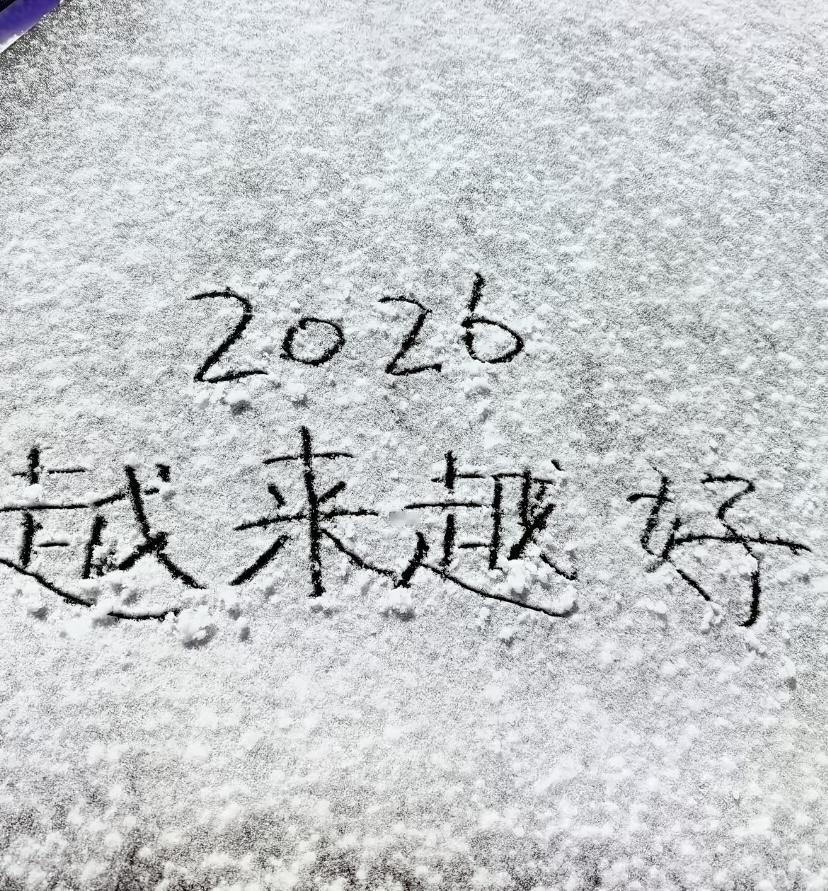 2026
越来越好